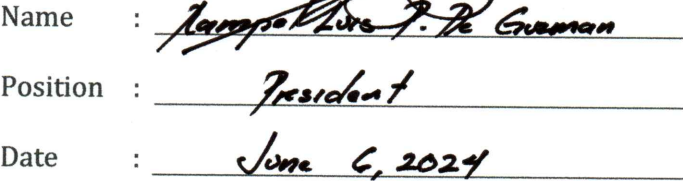 Name : Luis P. De Guzman
Position : President
Date : June 6, 2024